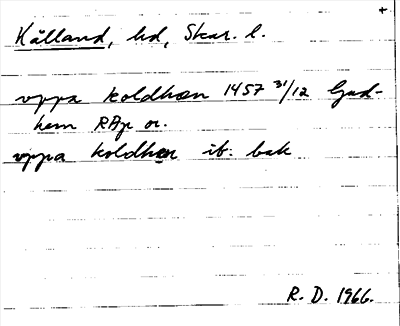 +
Kålland, hd, Skar. l.
vppa koldhæn 1457 31/12 Gud-
hem RAp or.
vppa koldhæn ib: bak
R. D. 1966.